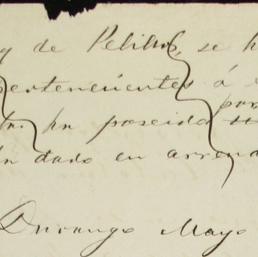 de Pelillos, se h
pertenecientes á
por
ha poseido su
dado en arrend
Durango Mayo